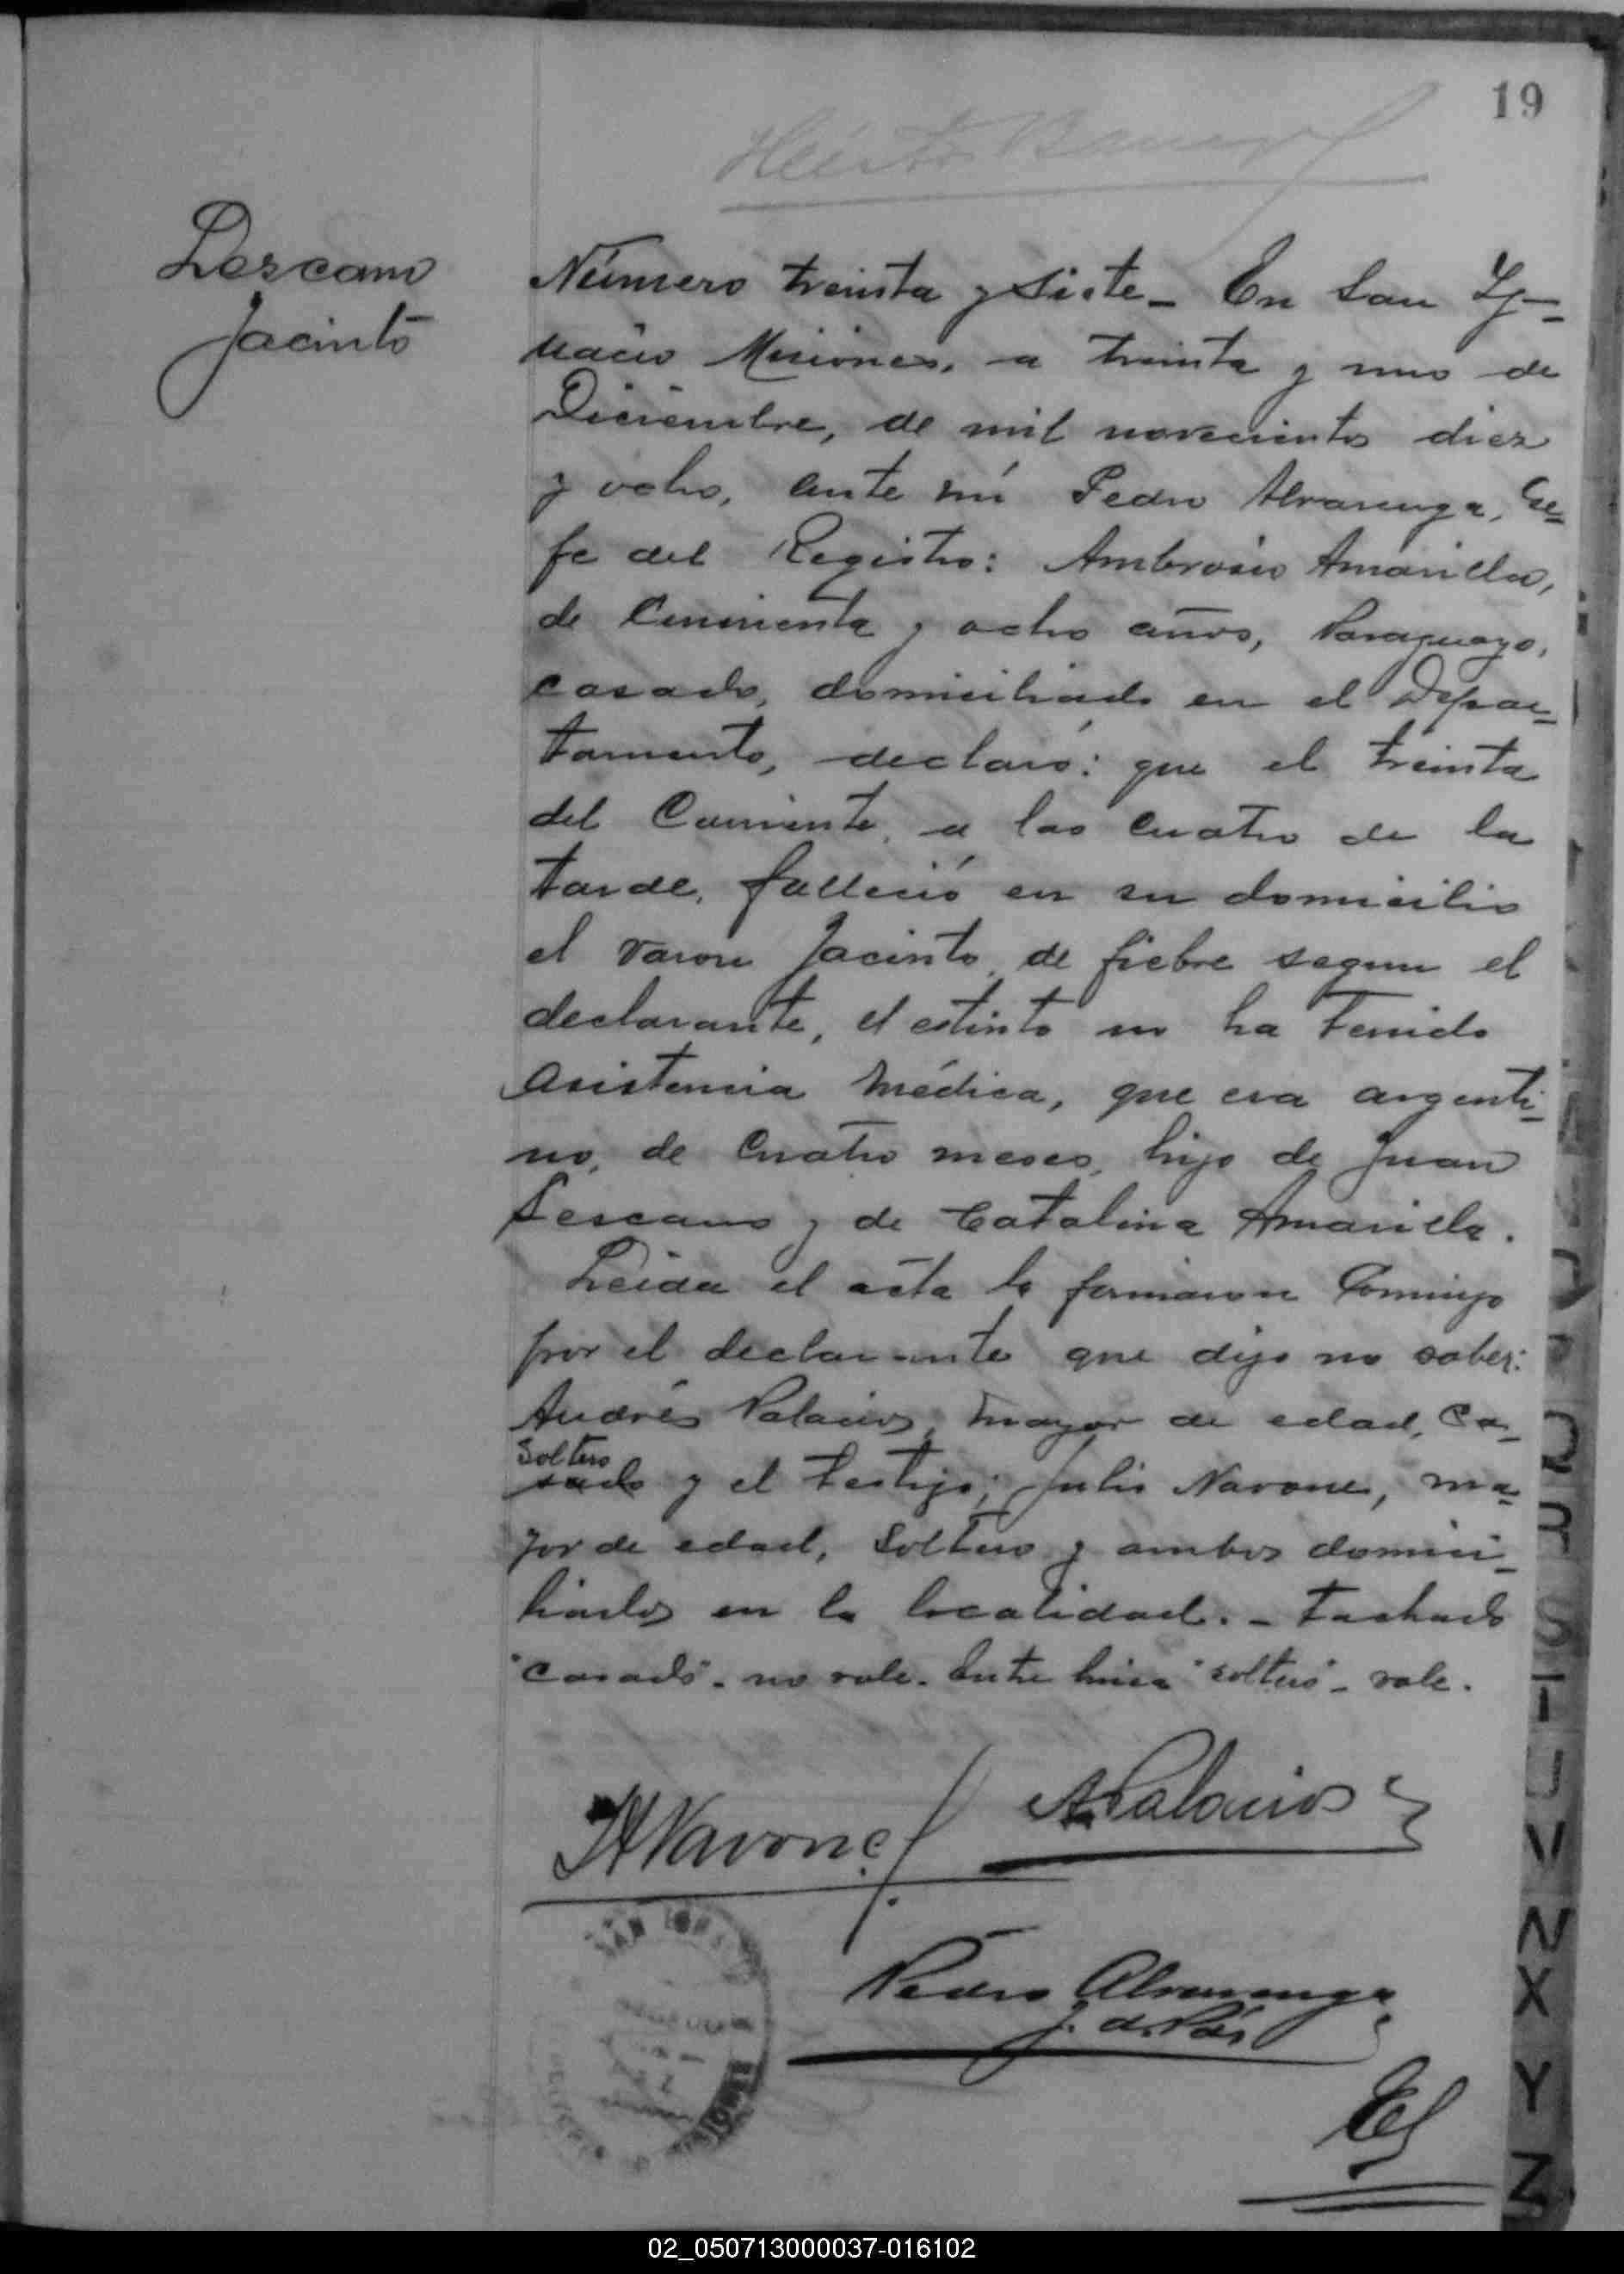 19
Lescano
Jacinto
Número treinta y siete_ En San Ig-
nacio Misiones, a treinta y uno de
Diciembre, de mil novecientos diez
y ocho, ante mí Pedro Alvarenga, Ge-
fe del Registro: Ambrosio Amarilla,
de Cincuenta y ocho años, Paraguayo,
casado, domiciliado en el Depar-
tamento, declaró: que el treinta
del Corriente, a las cuatro de la
tarde, falleció en su domicilio
el varon Jacinto, de fiebre segun el
declarante, el estinto no ha tenido
asistencia médica, que era argenti-
no, de Cuatro meses, hijo de Juan
Lescano y de Catalina Amarilla.
Leida el acta la firmaron Conmigo
por el declarante que dijo no saber:
Andrés Palacios, mayor de edad, Ca-
Soltero
sado y el testigo; Julio Navone, ma-
yor de edad, Soltero y ambos domici-
liados en la localidad. - Tachado
"casado". no vale. Entre linea "soltero" - vale.
Navone
A Palacios
Pedro Alvarenga
J. de Paz
SAN
MISIONES
S
T
U
V
X
Y
Z
02_050713000037-016102